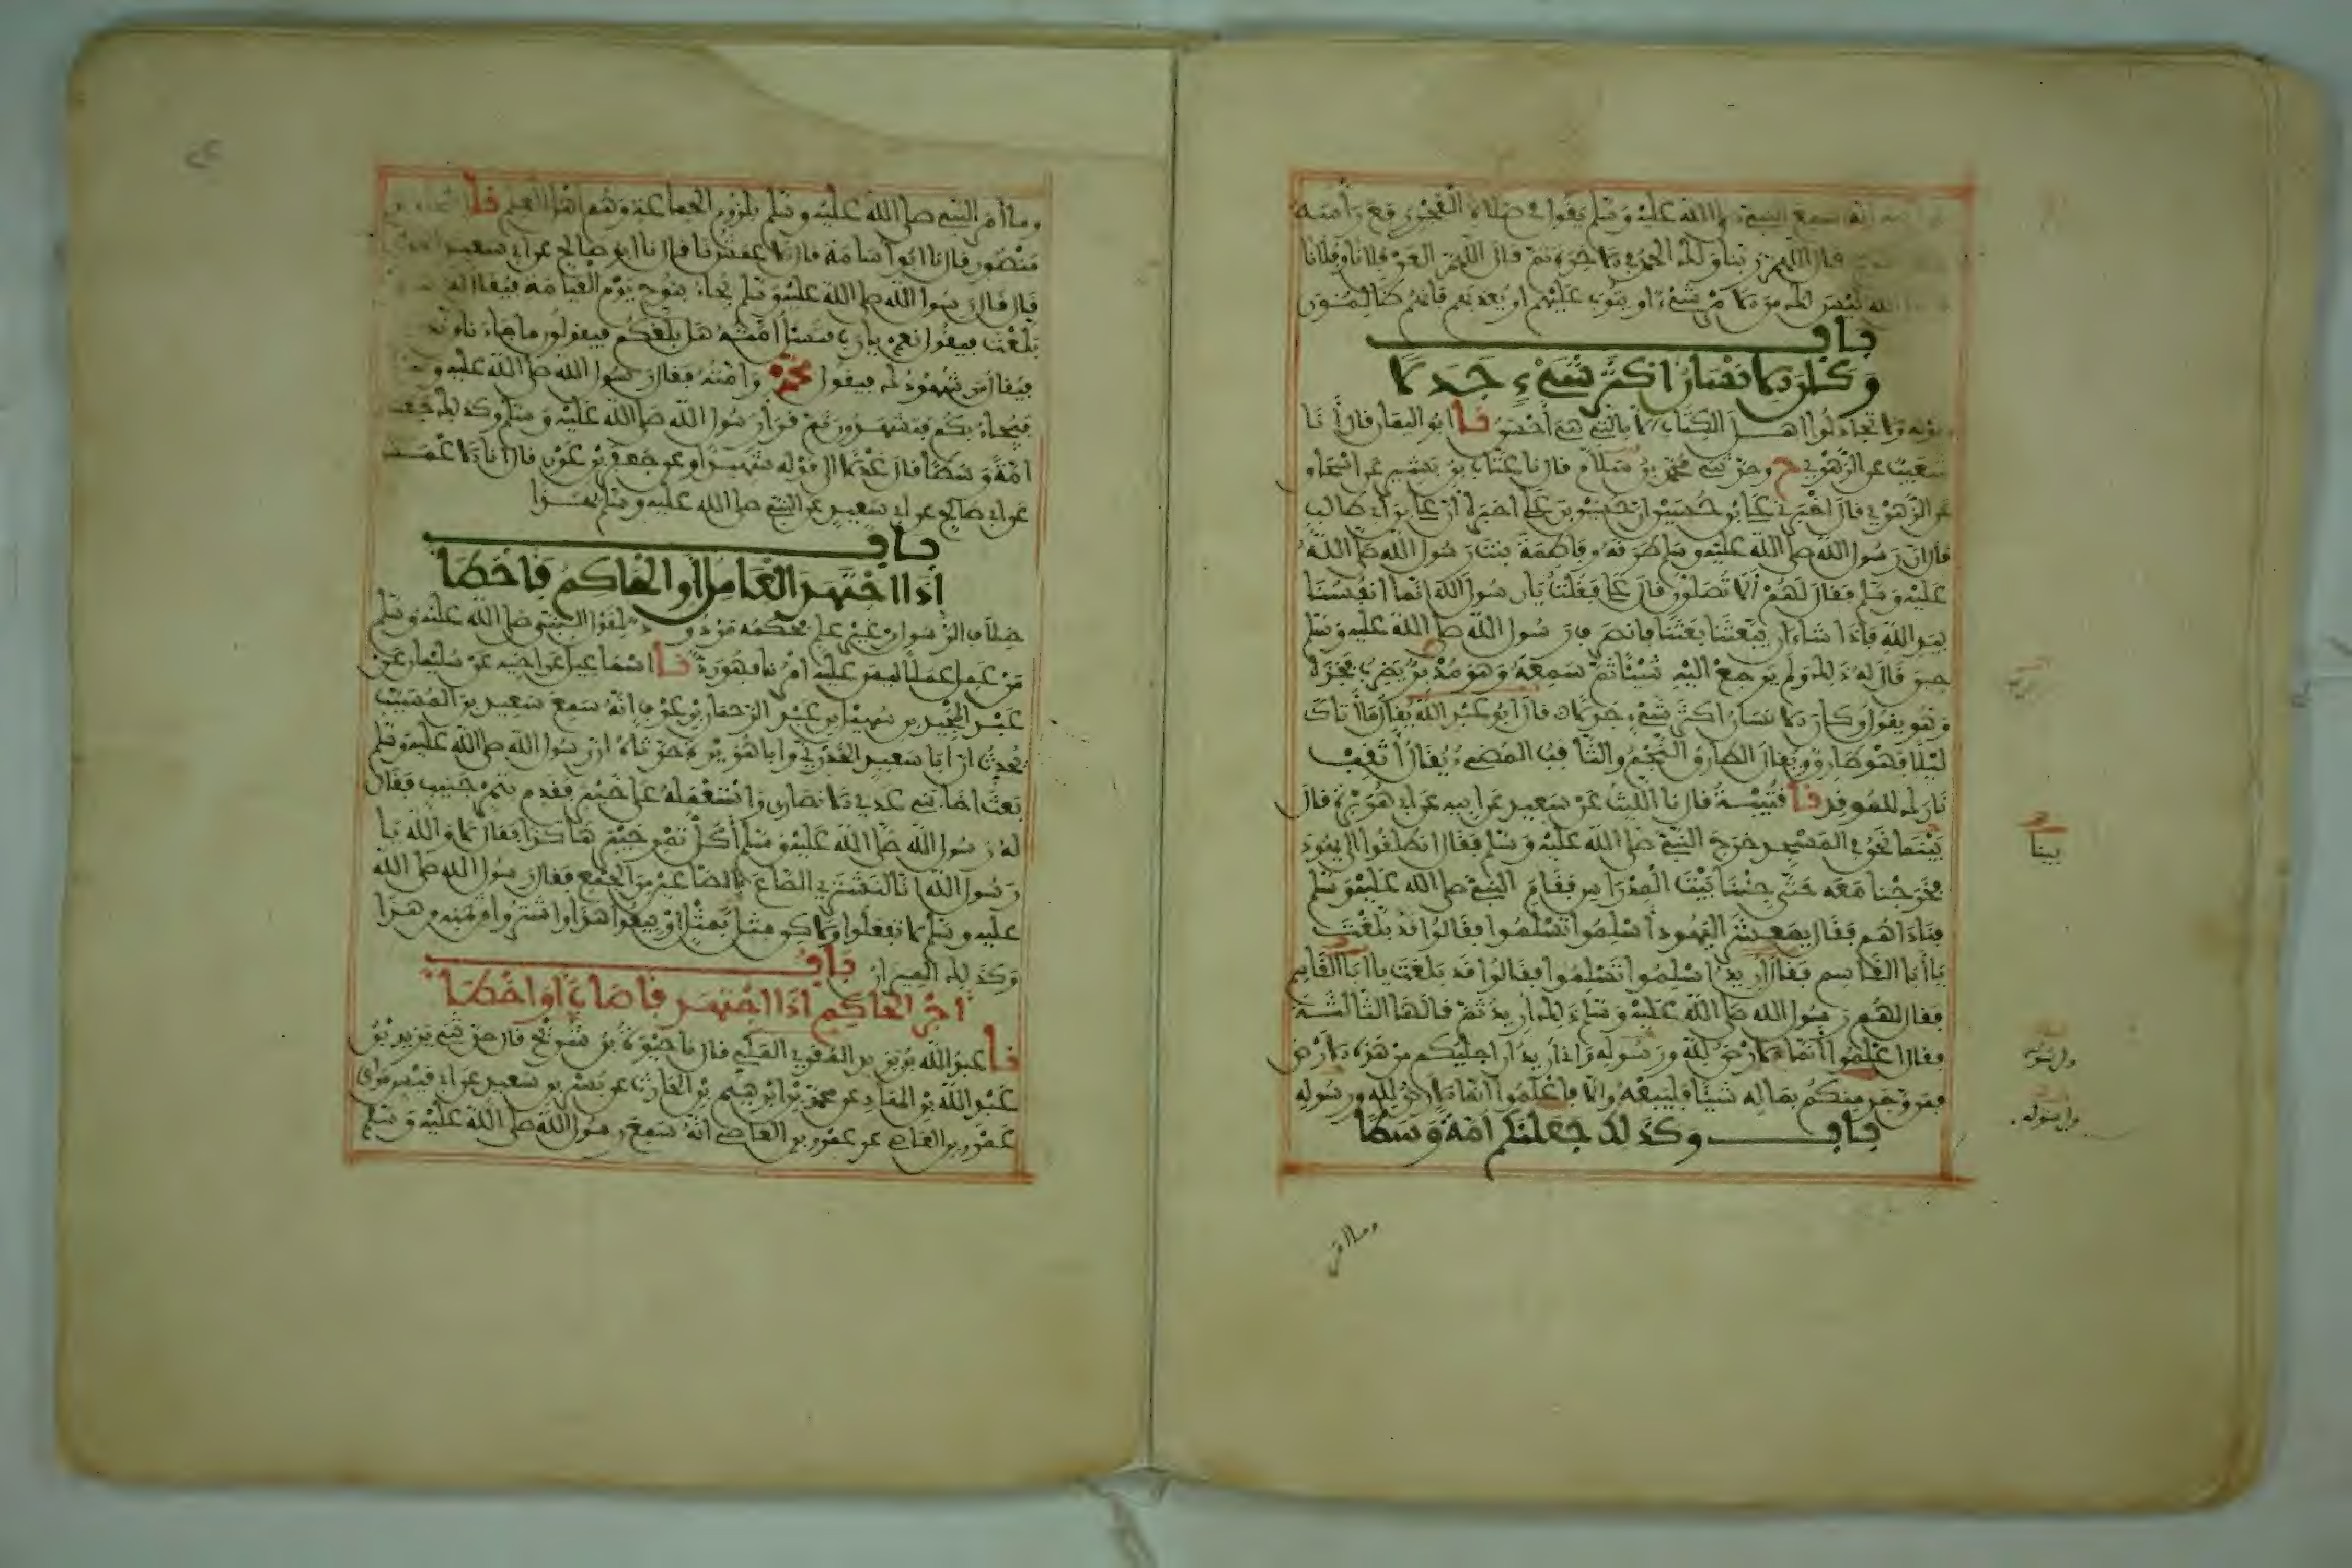 انه سمع النبي صلى الله عليه وسلم يقول في صلاة الفجر ورفع رأسه
قال اللهم ربنا ولك الحمد في الاخرة ثم قال اللهم العن فلانا وفلانا
الله ليس لك من الامر شيء او يتوب عليهم او يعذبهم فانهم ظالمون
باب
وكان الانسان اكثر شيء جدلا
وقوله ولا تجادلوا اهل الكتاب الا بالتي هي احسن نا ابو اليمان قال انا
شعيب عن الزهري ح وحدثني محمد بن سلام قال نا عتاب بن بشير عن اسحاق
عن الزهري قال اخبرني علي بن حسين ان حسين بن علي اخبره ان علي بن ابي طالب
قال ان رسول الله صلى الله عليه وسلم طرقه وفاطمة بنت رسول الله صلى الله
عليه وسلم فقال لهم الا تصلون قال علي فقلت يا رسول الله انما انفسنا
بيد الله فاذا شاء ان يبعثنا بعثنا فانصرف رسول الله صلى الله عليه وسلم
حين قال له ذلك ولم يرجع اليه شيئا ثم سمعه وهو مدبر يضرب فخذه
وهو يقول وكان الانسان اكثر شيء جدلا قال ابو عبد الله يقال ما اتاك
ليلا فهو طارق ويقال الطارق النجم والثاقب المضيء يقال اثقب
نارك للموقد نا قتيبة قال نا الليث عن سعيد عن ابيه عن ابي هريرة قال
بينما نحن في المسجد خرج النبي صلى الله عليه وسلم فقال انطلقوا الى يهود
فخرجنا معه حتى جئنا بيت المدراس فقام النبي صلى الله عليه وسلم
فناداهم فقال يمعشر اليهود اسلموا تسلموا فقالوا قد بلغت
يا ابا القاسم فقال اريد اسلموا تسلموا فقالوا قد بلغت يا ابا القاسم
فقال لهم رسول الله صلى الله عليه وسلم ذلك اريد ثم قالها الثالثة
فقال اعلموا انما الارض لله ورسوله وانا اريد ان اجليكم من هذه الارض
فمن وجد منكم بماله شيئا فليبعه والا فاعلموا انما الارض لله ورسوله
باب وكذلك جعلنكم امة وسطا
بينا
ولرسوله
ولرسوله
وما امر
وما امر النبي صلى الله عليه وسلم بلزوم الجماعة وهم اهل العلم نا اسحاق بن
منصور قال نا ابو اسامة قال نا الاعمش نا قال نا ابو صالح عن ابي سعيد
قال قال رسول الله صلى الله عليه وسلم يجاء بنوح يوم القيامة فيقال له هل
بلغت فيقول نعم يا رب فتسأل امته هل بلغكم فيقولون ما جاءنا من
فيقال من شهودك فيقول محمد وامته فقال رسول الله صلى الله عليه وسلم
فيجاء بكم فتشهدون ثم قرأ رسول الله صلى الله عليه وسلم وكذلك جعلنكم
امة وسطا قال عدلا الى قوله شهيدا وعن جعفر بن عون قال انا الاعمش
عن ابي صالح عن ابي سعيد عن النبي صلى الله عليه وسلم بهذا
باب
اذا اجتهد العامل او الحاكم فاخطا
خلاف الرسول من غير علم فحكمه مردود لقول النبي صلى الله عليه وسلم
من عمل عملا ليس عليه امرنا فهو رد نا اسماعيل عن اخيه عن سليمان عن
عبد المجيد بن سهيل بن عبد الرحمان بن عوف انه سمع سعيد بن المسيب
يحدث ان ابا سعيد الخدري وابا هريرة حدثاه ان رسول الله صلى الله عليه وسلم
بعث اخا بني عدي الانصاري واستعمله على خيبر فقدم بتمر جنيب فقال
له رسول الله صلى الله عليه وسلم أكل تمر خيبر هاكذا فقال لا والله يا
رسول الله انا لنشتري الصاع بالصاعين من الجمع فقال رسول الله صلى الله
عليه وسلم لا تفعلوا ولاكن مثلا بمثل او بيعوا هذا واشتروا بثمنه من هذا
وكذلك الميزان باب
اجر الحاكم اذا اجتهد فاصاب او اخطا
نا عبد الله بن يزيد المقرئ المكي قال نا حيوة بن شريح قال حدثني يزيد بن
عبد الله بن الهاد عن محمد بن ابرهيم بن الحارث عن بسر بن سعيد عن ابي قيس مولى
عمرو بن العاصي عن عمرو بن العاصي انه سمع رسول الله صلى الله عليه وسلم